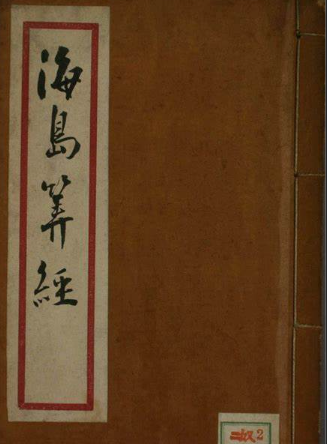 海島筭經
2